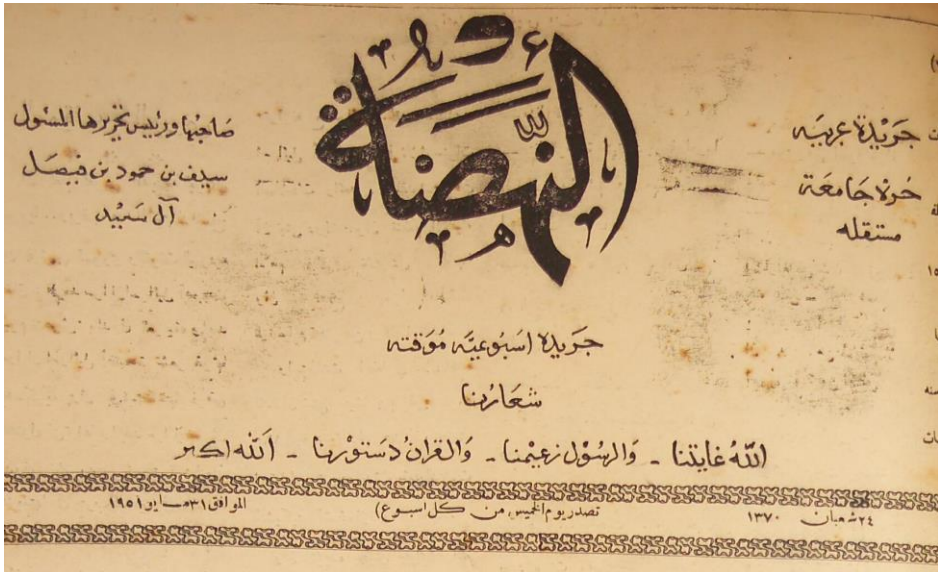 النهضة
جريدة عربيه
حرة جامعة
مستقله
صاحبها ورئيس تحريرها المسئول
سيف بن حمود بن فيصل
آل سعيد
جريدة اسبوعيه موقته
شعارنا
الله غايتنا - والرسول زعيمنا - والقران دستورنا - الله اكبر
٢٤ شعبان ١٣٧٠ تصدر يوم الخميس من كل اسبوع) الموافق ٣١ مايو ١٩٥١